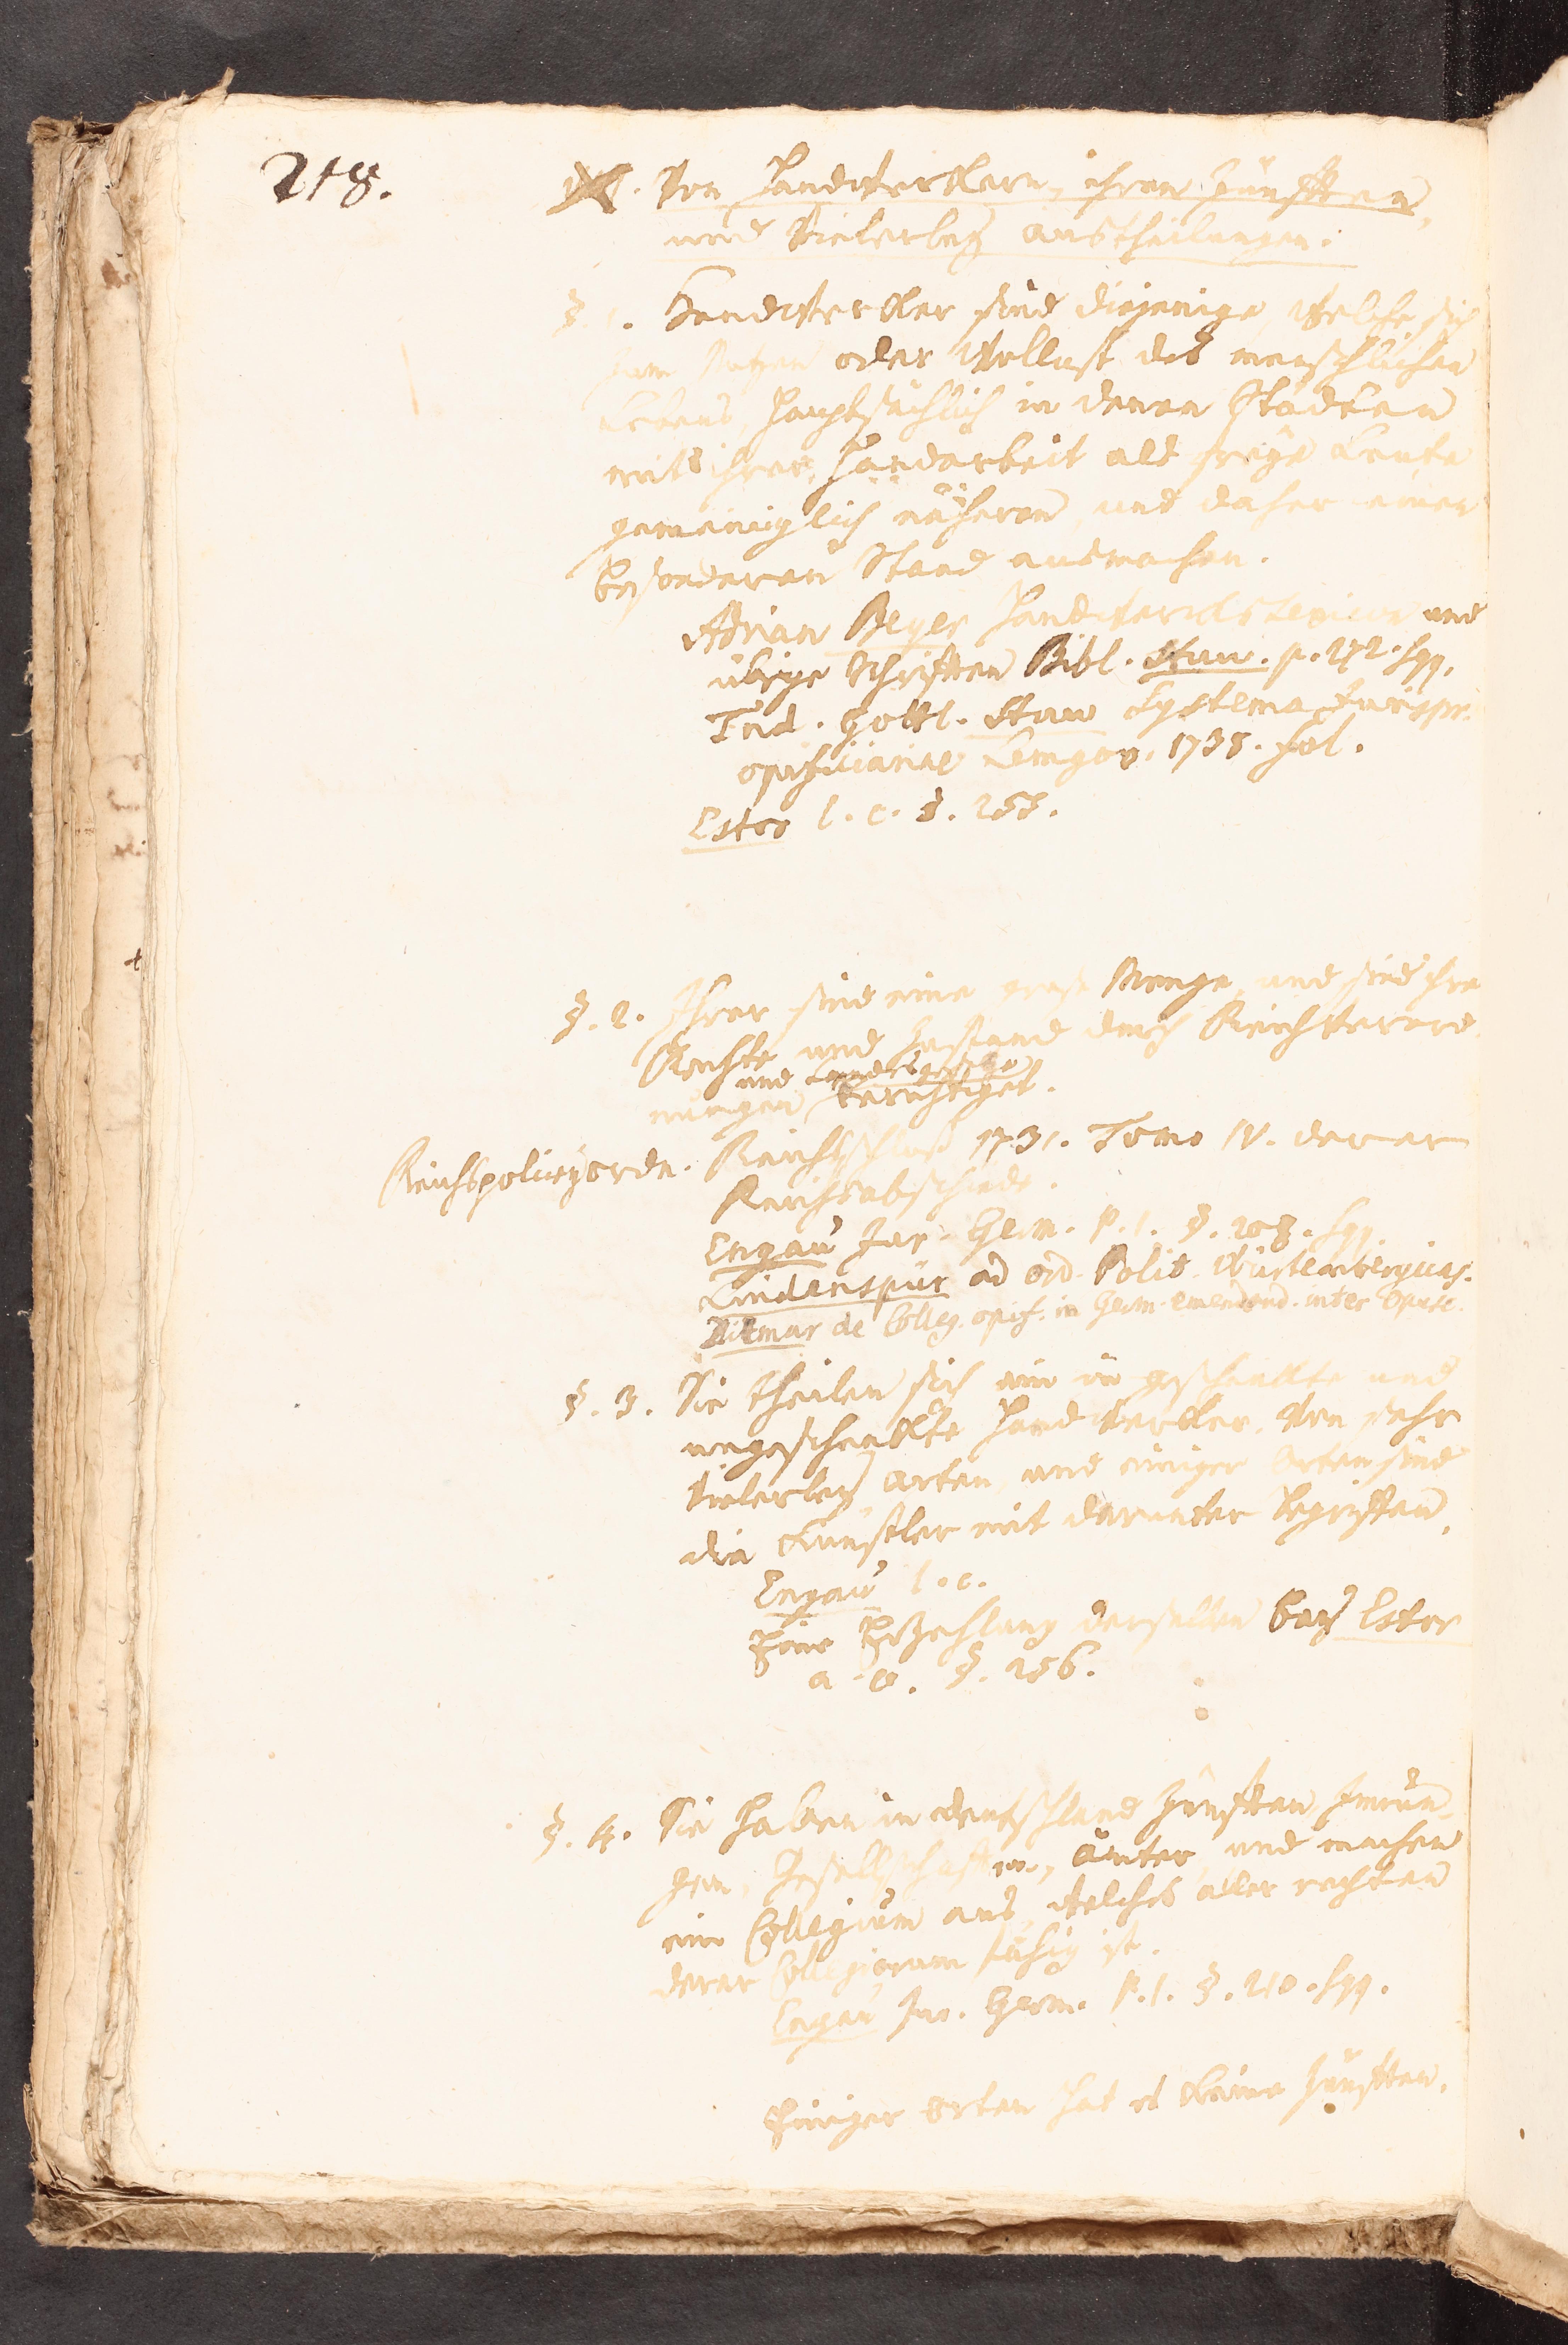 218.
Von Handwerckern, ihren Zünfften,
und Vielerley austheilungen.
§. 1. Handwercker sind diejenige, welche sich
zum Nutzen oder Wollust des menschlichen
Lebens, hauptsächlich in denen Städten
mit ihrer Handarbeit als freye Leute
gemeiniglich näheren, und daher einen
besonderen Stand ausmachen.
Adrian Beyer Handwercks Lexicon und
übrige Schrifften Bibl. Struv. p. 272. sqq.
Frid. Gottl. Struv Systema Jurispr.
opificiariae Lemgov. 1738. fol.
Estor l. c. §. 255.
§. 2. Ihrer sind eine große Menge, und sind ihre
Rechte und Zustand durch Reichsverord-
und Landsgesetze
nungen berichtiget.
Reichspoliceyordn. Reichsschluß 1731. Tomo IV. derer
Reichsabschiede.
Engau Jur. Germ. P. 1. §. 208. sqq.
Lindenspür ad ord. Polit. Würtembergicas.
Ditmar de Colleg. opif. in Germ. emendand. inter Opusc.
§. 3. Sie theilen sich ein in geschenckte und
ungeschenckte Handwercker. Von sehr
vielerley arten, und einiger Orten sind
die Künstler mit darunter begriffen.
Engau l. c.
Eine Erzehlung derselben bey Estor
a. O. §. 256.
§. 4. Sie haben in deutschland Zünfften, Innun-
gen, Gesellschafften, ämter und machen
ein Collegium aus, welches aller rechten
derer Collegiorum fähig ist.
Engau Jur. Germ. P. 1. §. 210. sqq.
Einiger Orten hat es keine Zünfften.